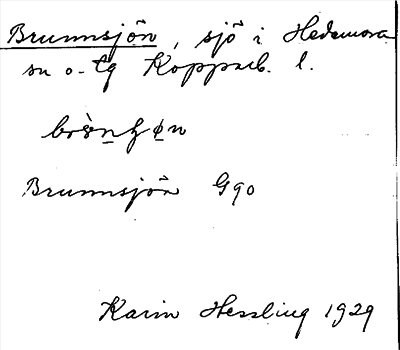 Brunnsjön, sjö i Hedemora
sn o. tg Kopparb. l.
Brunnsjön G90
Karin Hessling 1929